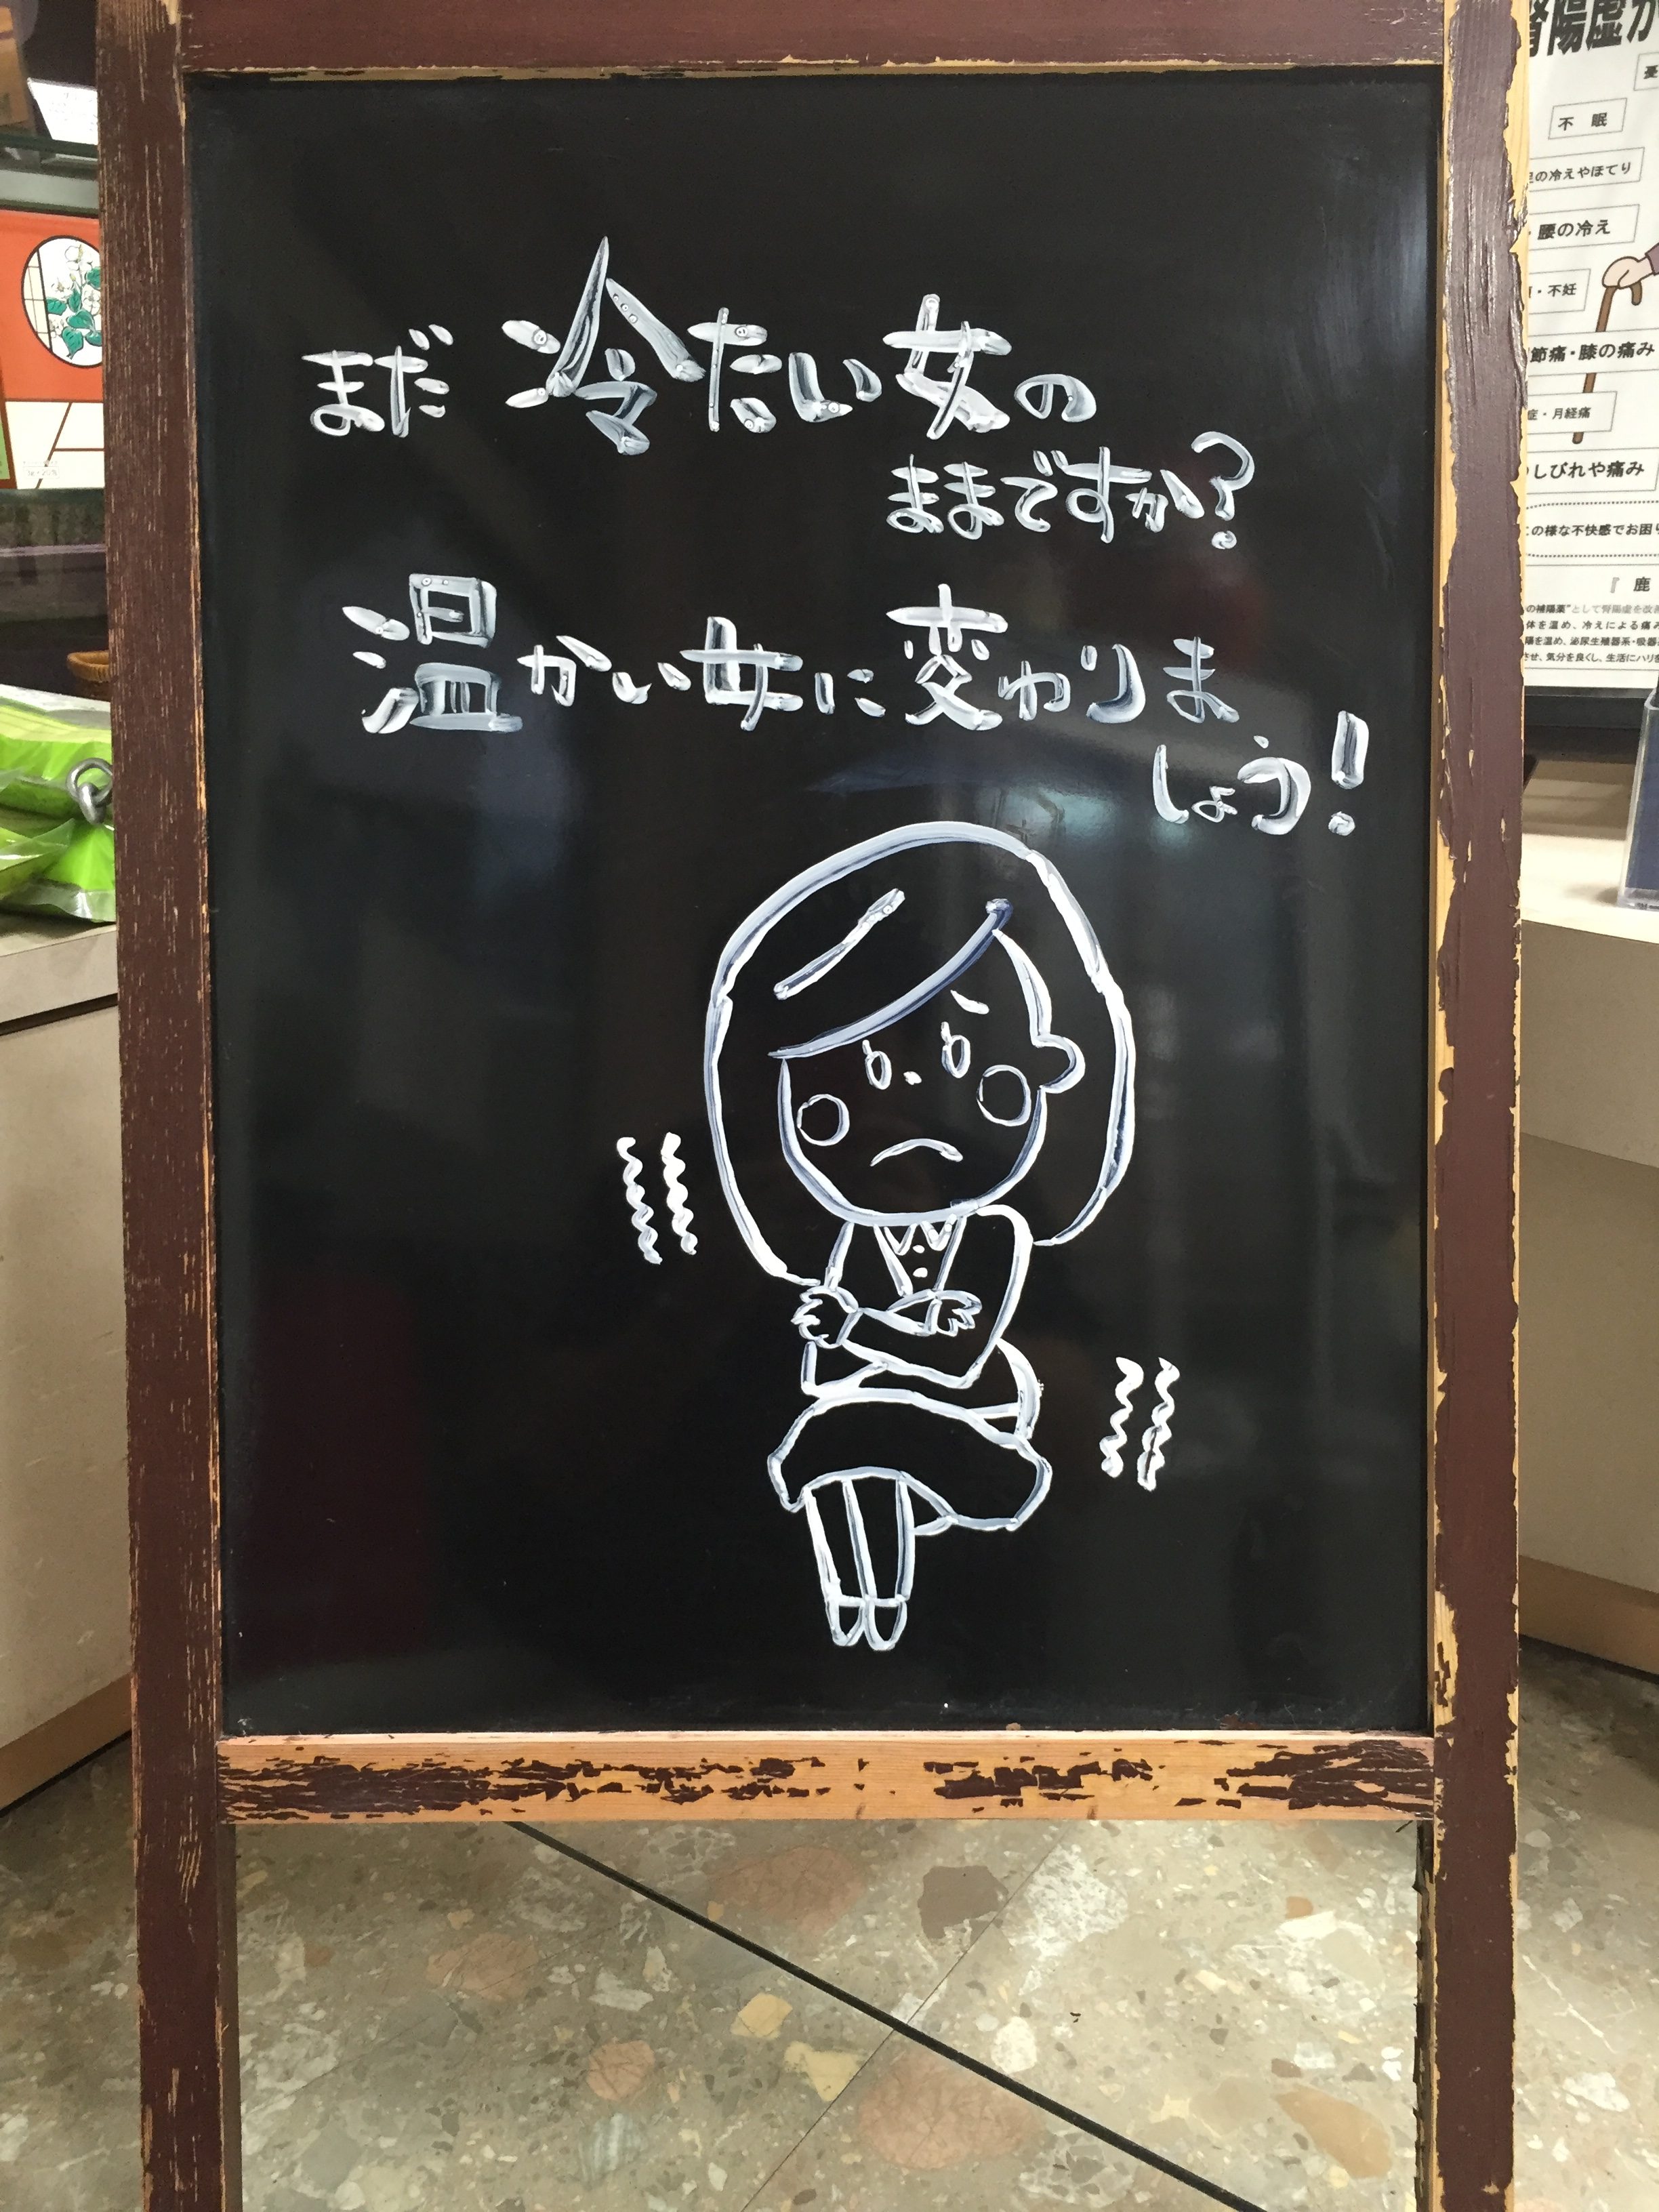 まだ冷たい女の
ままですか?
温かい女に変わりま
しょう!
腎陽虚が
不眠
の冷えやほてり
腰の冷え
・不妊
節痛・膝の痛み
症・月経痛
しびれや痛み
の様な不快感でお困り
『鹿
の補陽薬"として腎陽虚を改善
体を温め、冷えによる痛み
陽を温め、泌尿生殖器系・吸器
せ、気分を良くし、生活にハリを